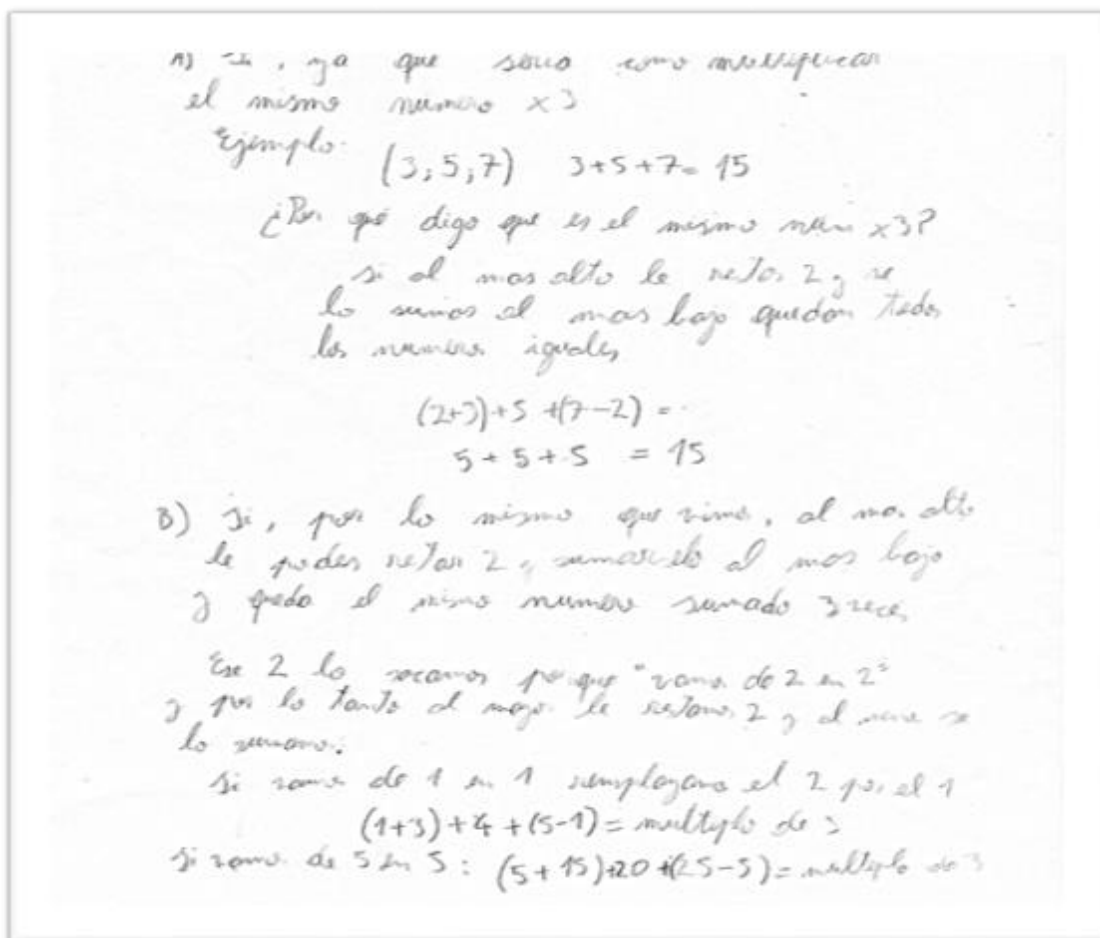 A) Si, ya que seria como multiplicar
el mismo numero x3
Ejemplo:
(3,5,7) 3+5+7= 15
¿Por qué digo que es el mismo num x3?
si al mas alto le restas 2 y se
lo sumas al mas bajo quedan todos
los numeros iguales
(2+3)+5+(7-2) =
5+5+5 = 15
B) Si, por lo mismo que vimos, al mas alto
le podes restar 2, sumarselo al mas bajo
y queda el mismo numero sumado 3 veces
Ese 2 lo sacamos porque "vamos de 2 en 2"
y por lo tanto al mayor le restamos 2 y al se
lo sumamos.
Si vamos de 1 en 1 remplazamos el 2 por el 1
(1+3)+4+(5-1)= multiplo de 3
Si vamos de 5 en 5: (5+15)+20+(25-5)= multiplo de 3